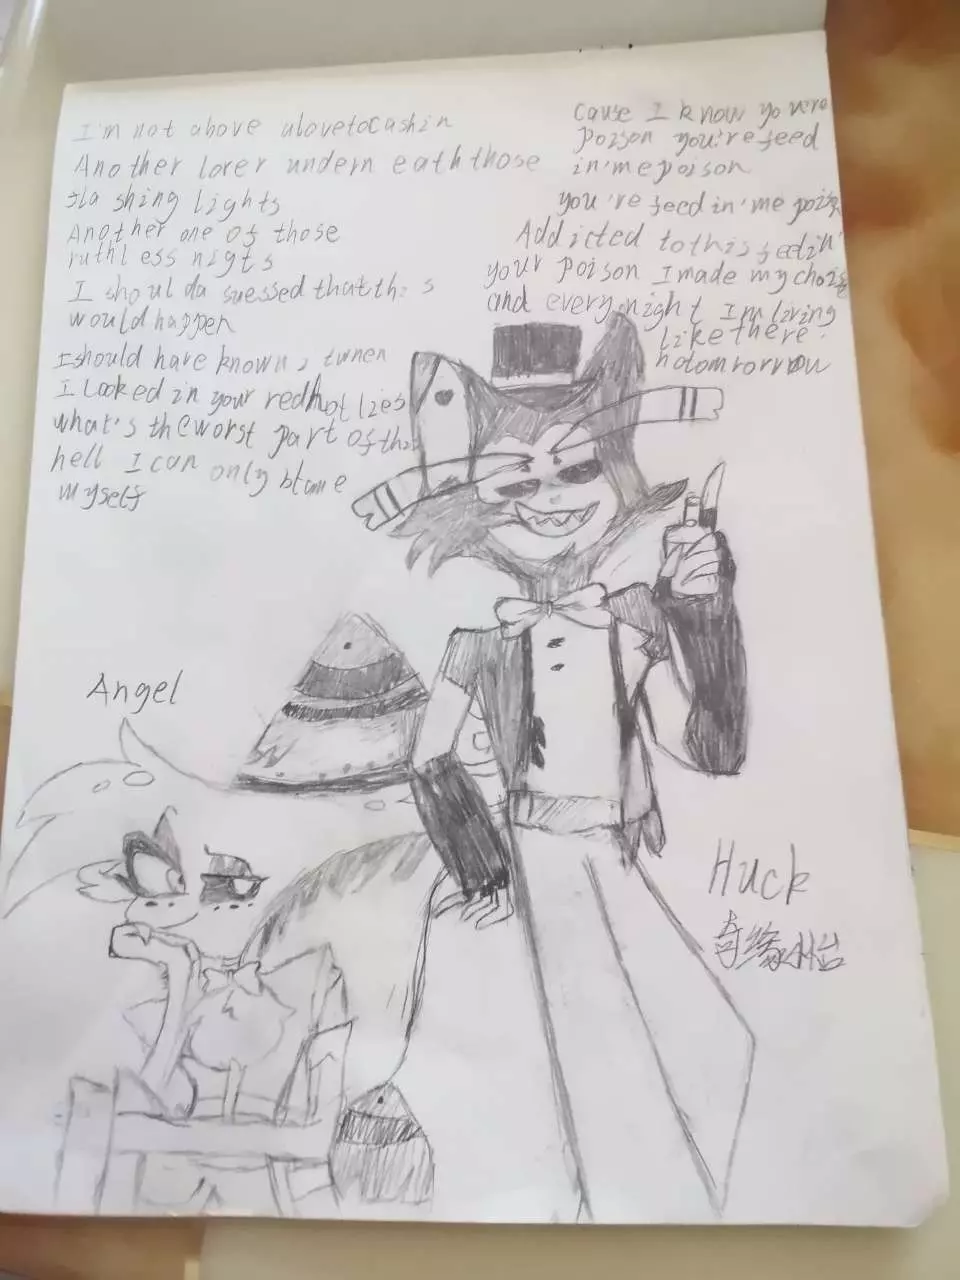 I'm not above ulovetocashin
Another lorer undern eaththose
fla shing lights
Another one of those
ruthl ess nigts
I shoul da suessed thatthis
would happen
I should have known, tunen
I looked in your redhot lies
what's the worst part of this
hell I can only blame
myself
cause I know yo were
poison you're feed
in'me poison
you're feed in'me poison
Addicted to this feelin'
your poison I made my choise
and every night I'm living
like there
notomrorrow
Angel
Huck
奇缘冰台